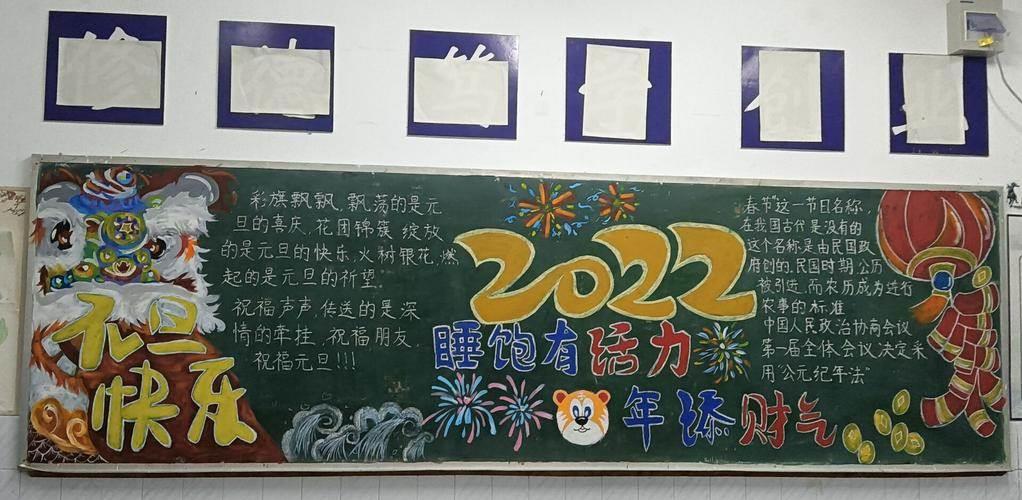 修德笃学创业
彩旗飘飘、飘荡的是元
旦的喜庆.花团锦簇 绽放
的是元旦的快乐.火树银花,燃
起的是元旦的祈望.
祝福声声,传送的是深
情的牵挂.祝福朋友,
祝福元旦!!!
元旦
快乐
2022
睡饱有活力
年添财气
春节这一节日名称,
在我国古代是没有的
这个名称是由民国政
府创的.民国时期,公历
被引进.而农历成为进行
农事的标准
中国人民政治协商会议
第一届全体会议决定采
用"公元纪年法"